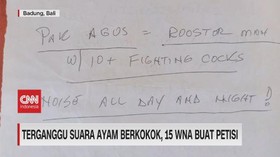 Badung, Bali
PAK AGUS = ROOSTOR MAN
W/ 10+ FIGHTING COCKS
NOISE ALL DAY AND NIGHT!
CNN
Indonesia
TERGANGGU SUARA AYAM BERKOKOK, 15 WNA BUAT PETISI